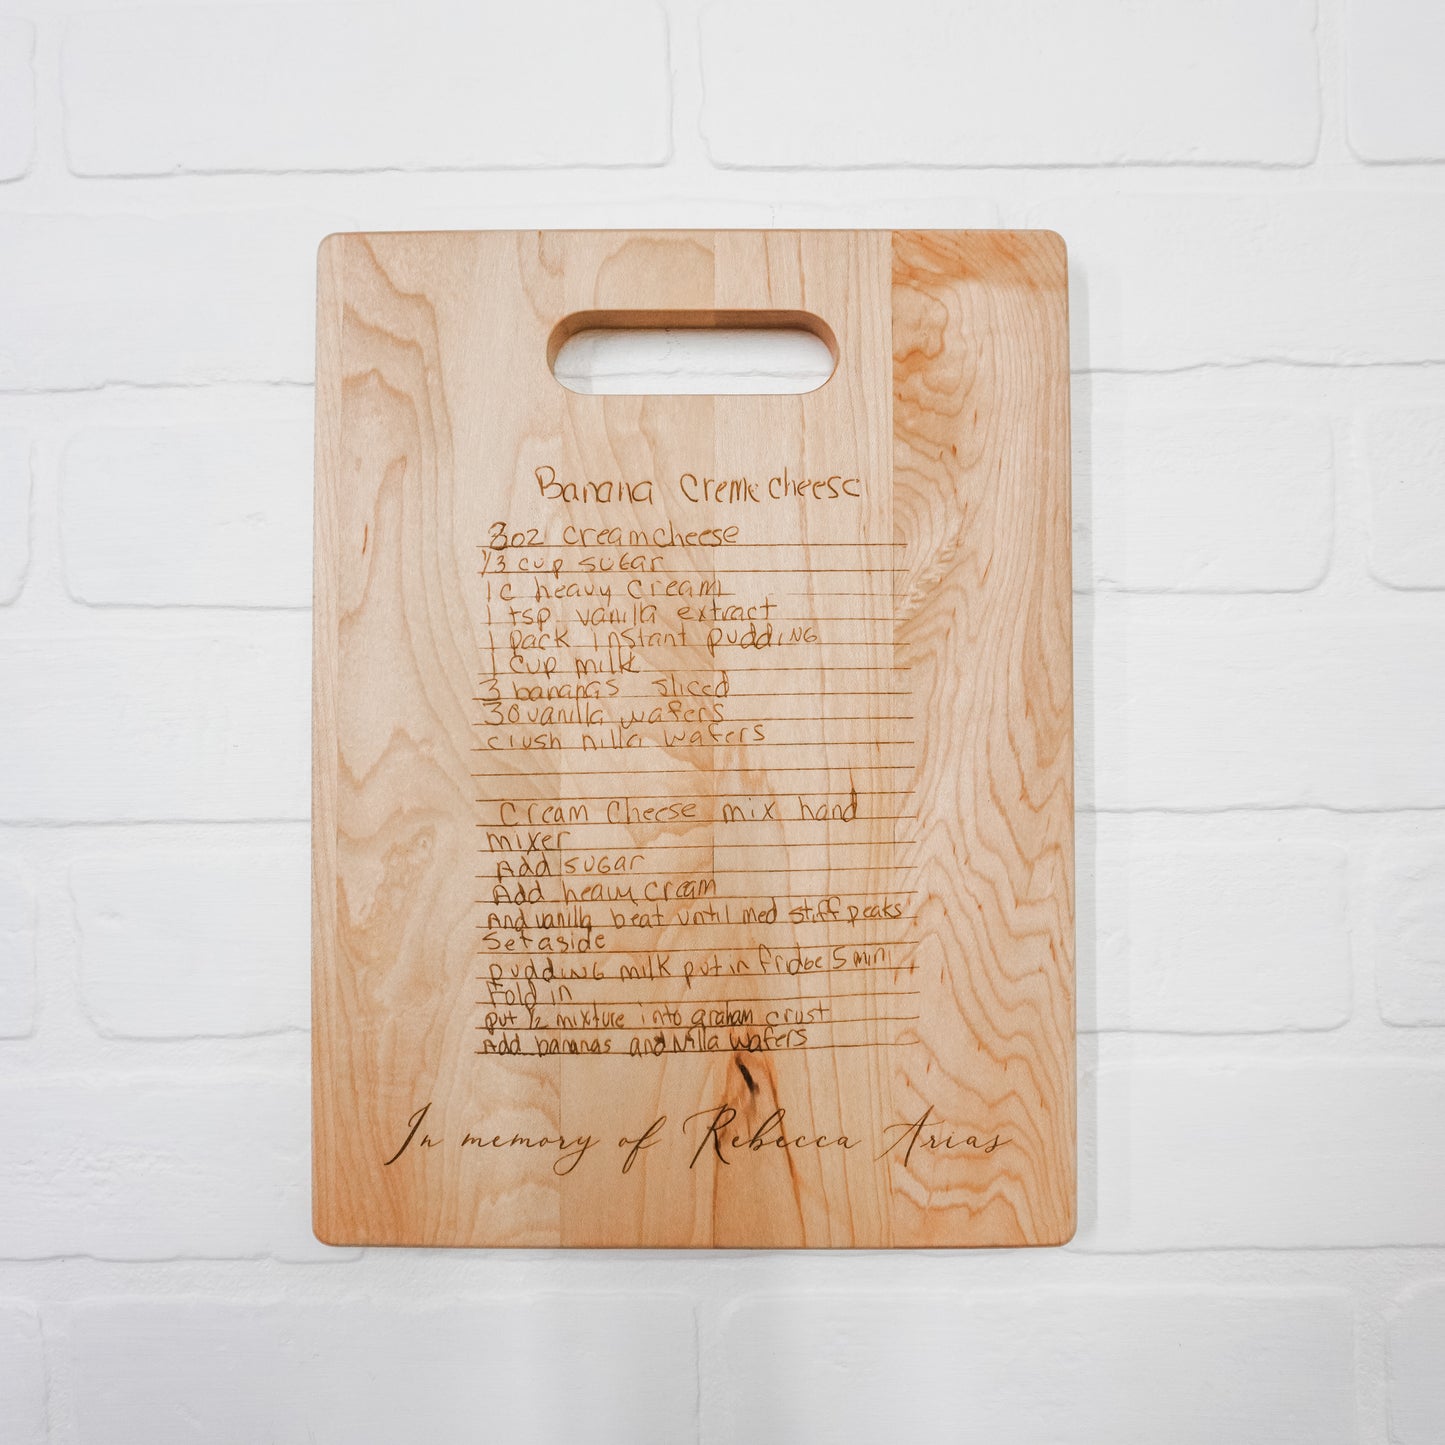 Banana Creme cheese
8oz creamcheese
1/3 cup sugar
1 c heavy cream
1 tsp vanilla extract
1 pack instant pudding
1 cup milk
3 bananas sliced
30 vanilla wafers
crush nilla wafers
Cream cheese mix hand
mixer
Add sugar
Add heavy cream
And vanilla beat until med stiff peaks
Set aside
pudding milk put in fridge 5 min
Fold in
put 1/2 mixture into graham crust
Add bananas and Nilla wafers
In memory of Rebecca Arias